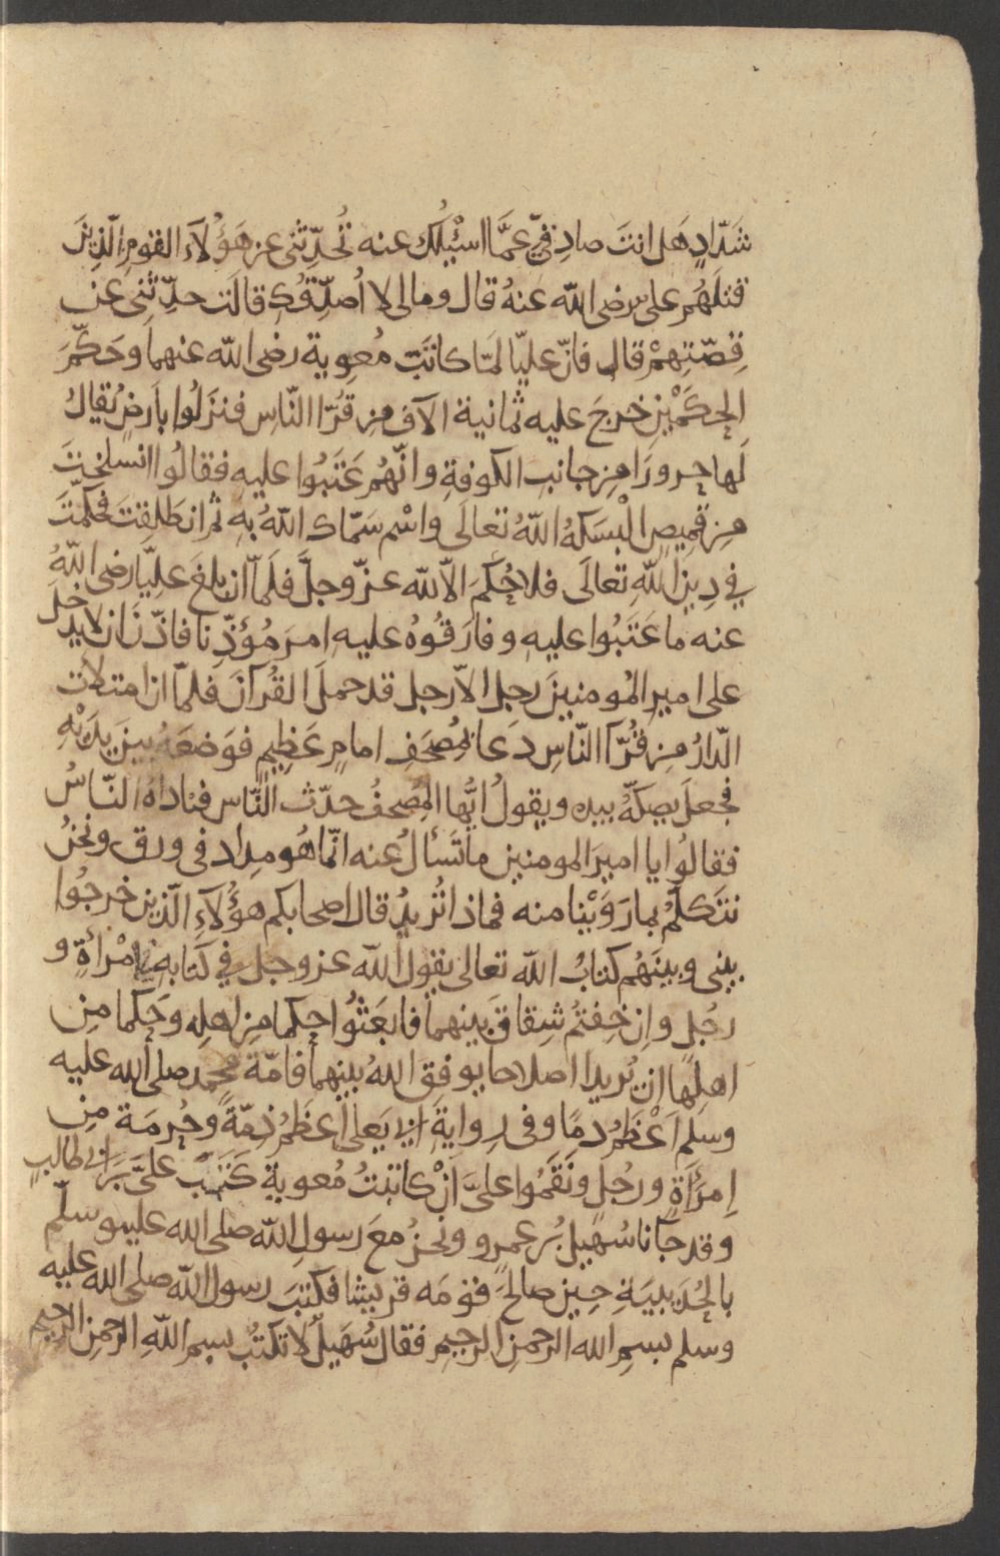 شَدّادٍ هَل انتَ صادِقِيّ عمَّا اسْئَلُكَ عنه تُحدِّثنى عن هَؤُلآءِ القومِ الّذينَ
قتلَهُم على رضى الله عنهُ قال ومالى لا اُصدِّقُكِ قالَت حدِّثنى عن
قِصّتِهِمْ قال فانّ عليّا لمّا كاتَبَ مُعوية رضى الله عنهما وحَكّمَ
الحكَمَيْنِ خرجَ عليه ثمانية الآف من قُرّا النّاسِ فنزَلُوا بأَرضٍ يُقالُ
لَها حرورَا من جانبِ الكوفةِ وانّهُم عَتَبُوا عليهِ فقالُوا انسلختَ
من قمِيصٍ الْبسَكهُ اللّهُ تعالَى واسْمٍ سَمّاكَ اللّهُ بهِ ثم انطَلقتَ فحكّمتَ
فى دِينِ اللّهِ تعالَى فلا حُكمَ الّا لله عزّ وجلَّ فلمّا ان بلغَ عليّا رضى اللّهُ
عنه ما عَتَبُوا عليهِ وفارَقُوهُ عليه امرَ مُؤذّنا فاذّنَ ان لا يدخلَ
على امير المُومنينَ رجل الّا رجل قد حملَ القُرآنَ فلمّا ان امتلات
الدّارُ من قُرّآ النّاسِ دَعا بمُصحَفٍ امامٍ عَظِيمٍ فوَضعَهُ بينَ يدَيْهِ
فجعلَ يصكّهُ بيدهِ ويقولُ ايُّها المُصحفُ حدّث النّاس فناداهُ النّاسُ
فقالُوا يا اميرَ المومنين ما تَسألُ عنه انّما هُو مِداد فى ورق ونحنُ
نتَكلّمُ بما رَوَيْنا منه فماذا تُريدُ قال اصحابكم هؤُلآءِ الّذين خرجُوا
بينى وبينَهُم كتابُ الله تعالى يقول الله عز وجل فى كتابهِ فى امْرأةٍ و
رجُلٍ وإن خِفتُم شِقاقَ بَينهما فابعَثُوا حكما من اهلِه وحَكما مِن
اهلِها ان يُريدا اصلاحا يوفقِ اللهُ بينهما فامّة محمد صلى الله عليه
وسلم اَعْظَمُ دمًا وفى رِوايةِ ابى يَعلى اَعظَمُ ذِمّةً وحُرمَة مِن
اِمرَأةٍ ورجُلٍ ونَقَمُوا علىَّ اَنْ كاتبتُ مُعوية كَتَبَ علىّ بن ابى طالبٍ
وقد جآنا سُهَيلُ بنُ عمرو ونحنُ معَ رسولِ اللّه صلى الله عليه وسلّم
بالحُدَيبيَةِ حِين صالحَ قومَه قريشا فكتبَ رسول اللّه صلى الله عليه
وسلم بسمِ الله الرحمنِ الرحِيمِ فقال سُهَيلٌ لا تكتُبْ بسمِ اللّهِ الرحمنِ الرحيم